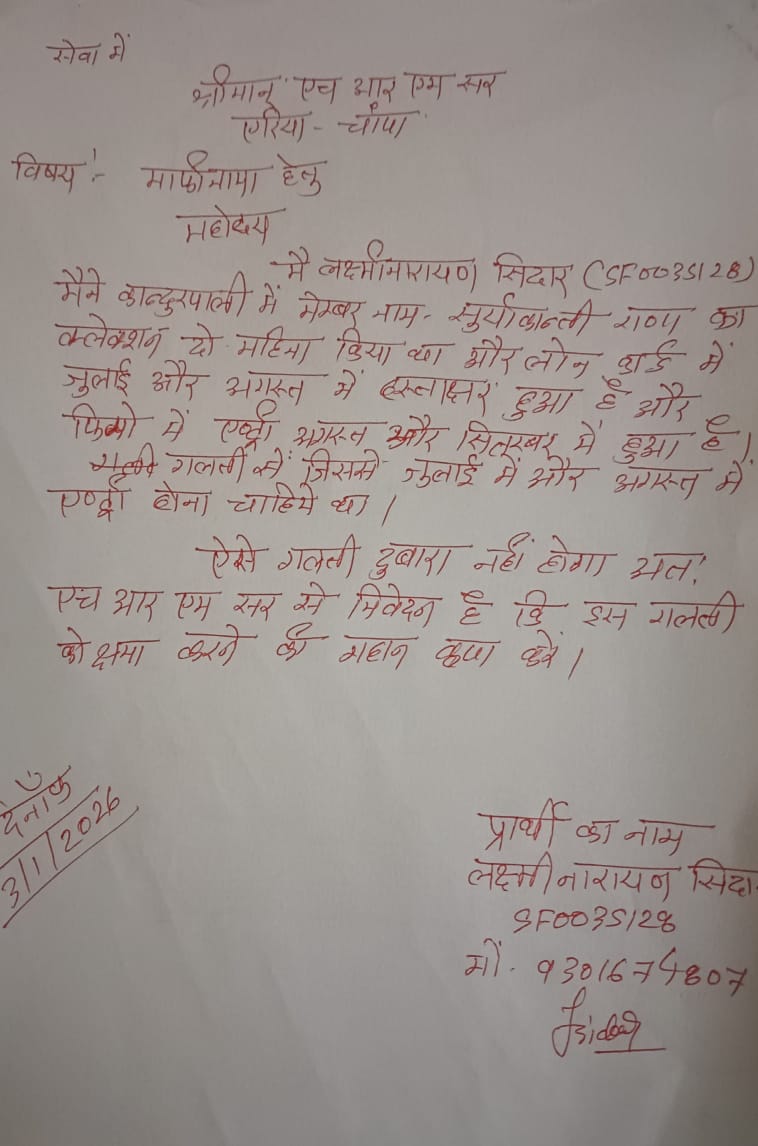 सेवा में
श्रीमान् एच आर एम सर
एरिया - चांपा
विषय :- माफीनामा हेतु
महोदय
मै लक्ष्मीनारायण सिदार (SF0035128)
मैने कान्दुरपाली में मेम्बर नाम - सुर्याकान्ती राणा का
क्लेक्शन दो महिना किया था और लोन कार्ड में
जुलाई और अगस्त में हस्ताक्षर हुआ है और
फिमो में एन्ट्री अगस्त और सितम्बर में हुआ है।
गलती से जिसमे जुलाई में और अगस्त में
एण्ट्री होना चाहिये था।
ऐसे गलती दुबारा नहीं होगा अतः
एच आर एम सर से निवेदन है कि इस गलती
को क्षमा करने की महान कृपा करें।
देनाँक
3/1/2026
प्रार्थी का नाम
लक्ष्मीनारायण सिदा
SF0035128
मो. 9301674807